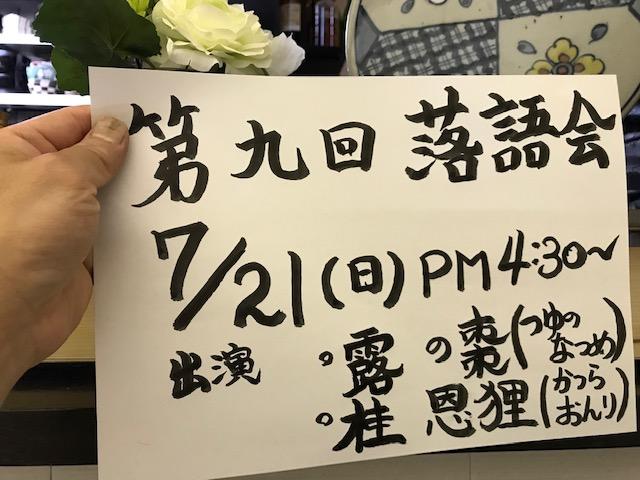 第九回 落語会
7/21(日) PM 4:30~
出演 。露の棗(つゆのなつめ)
。桂 恩狸(かつらおんり)